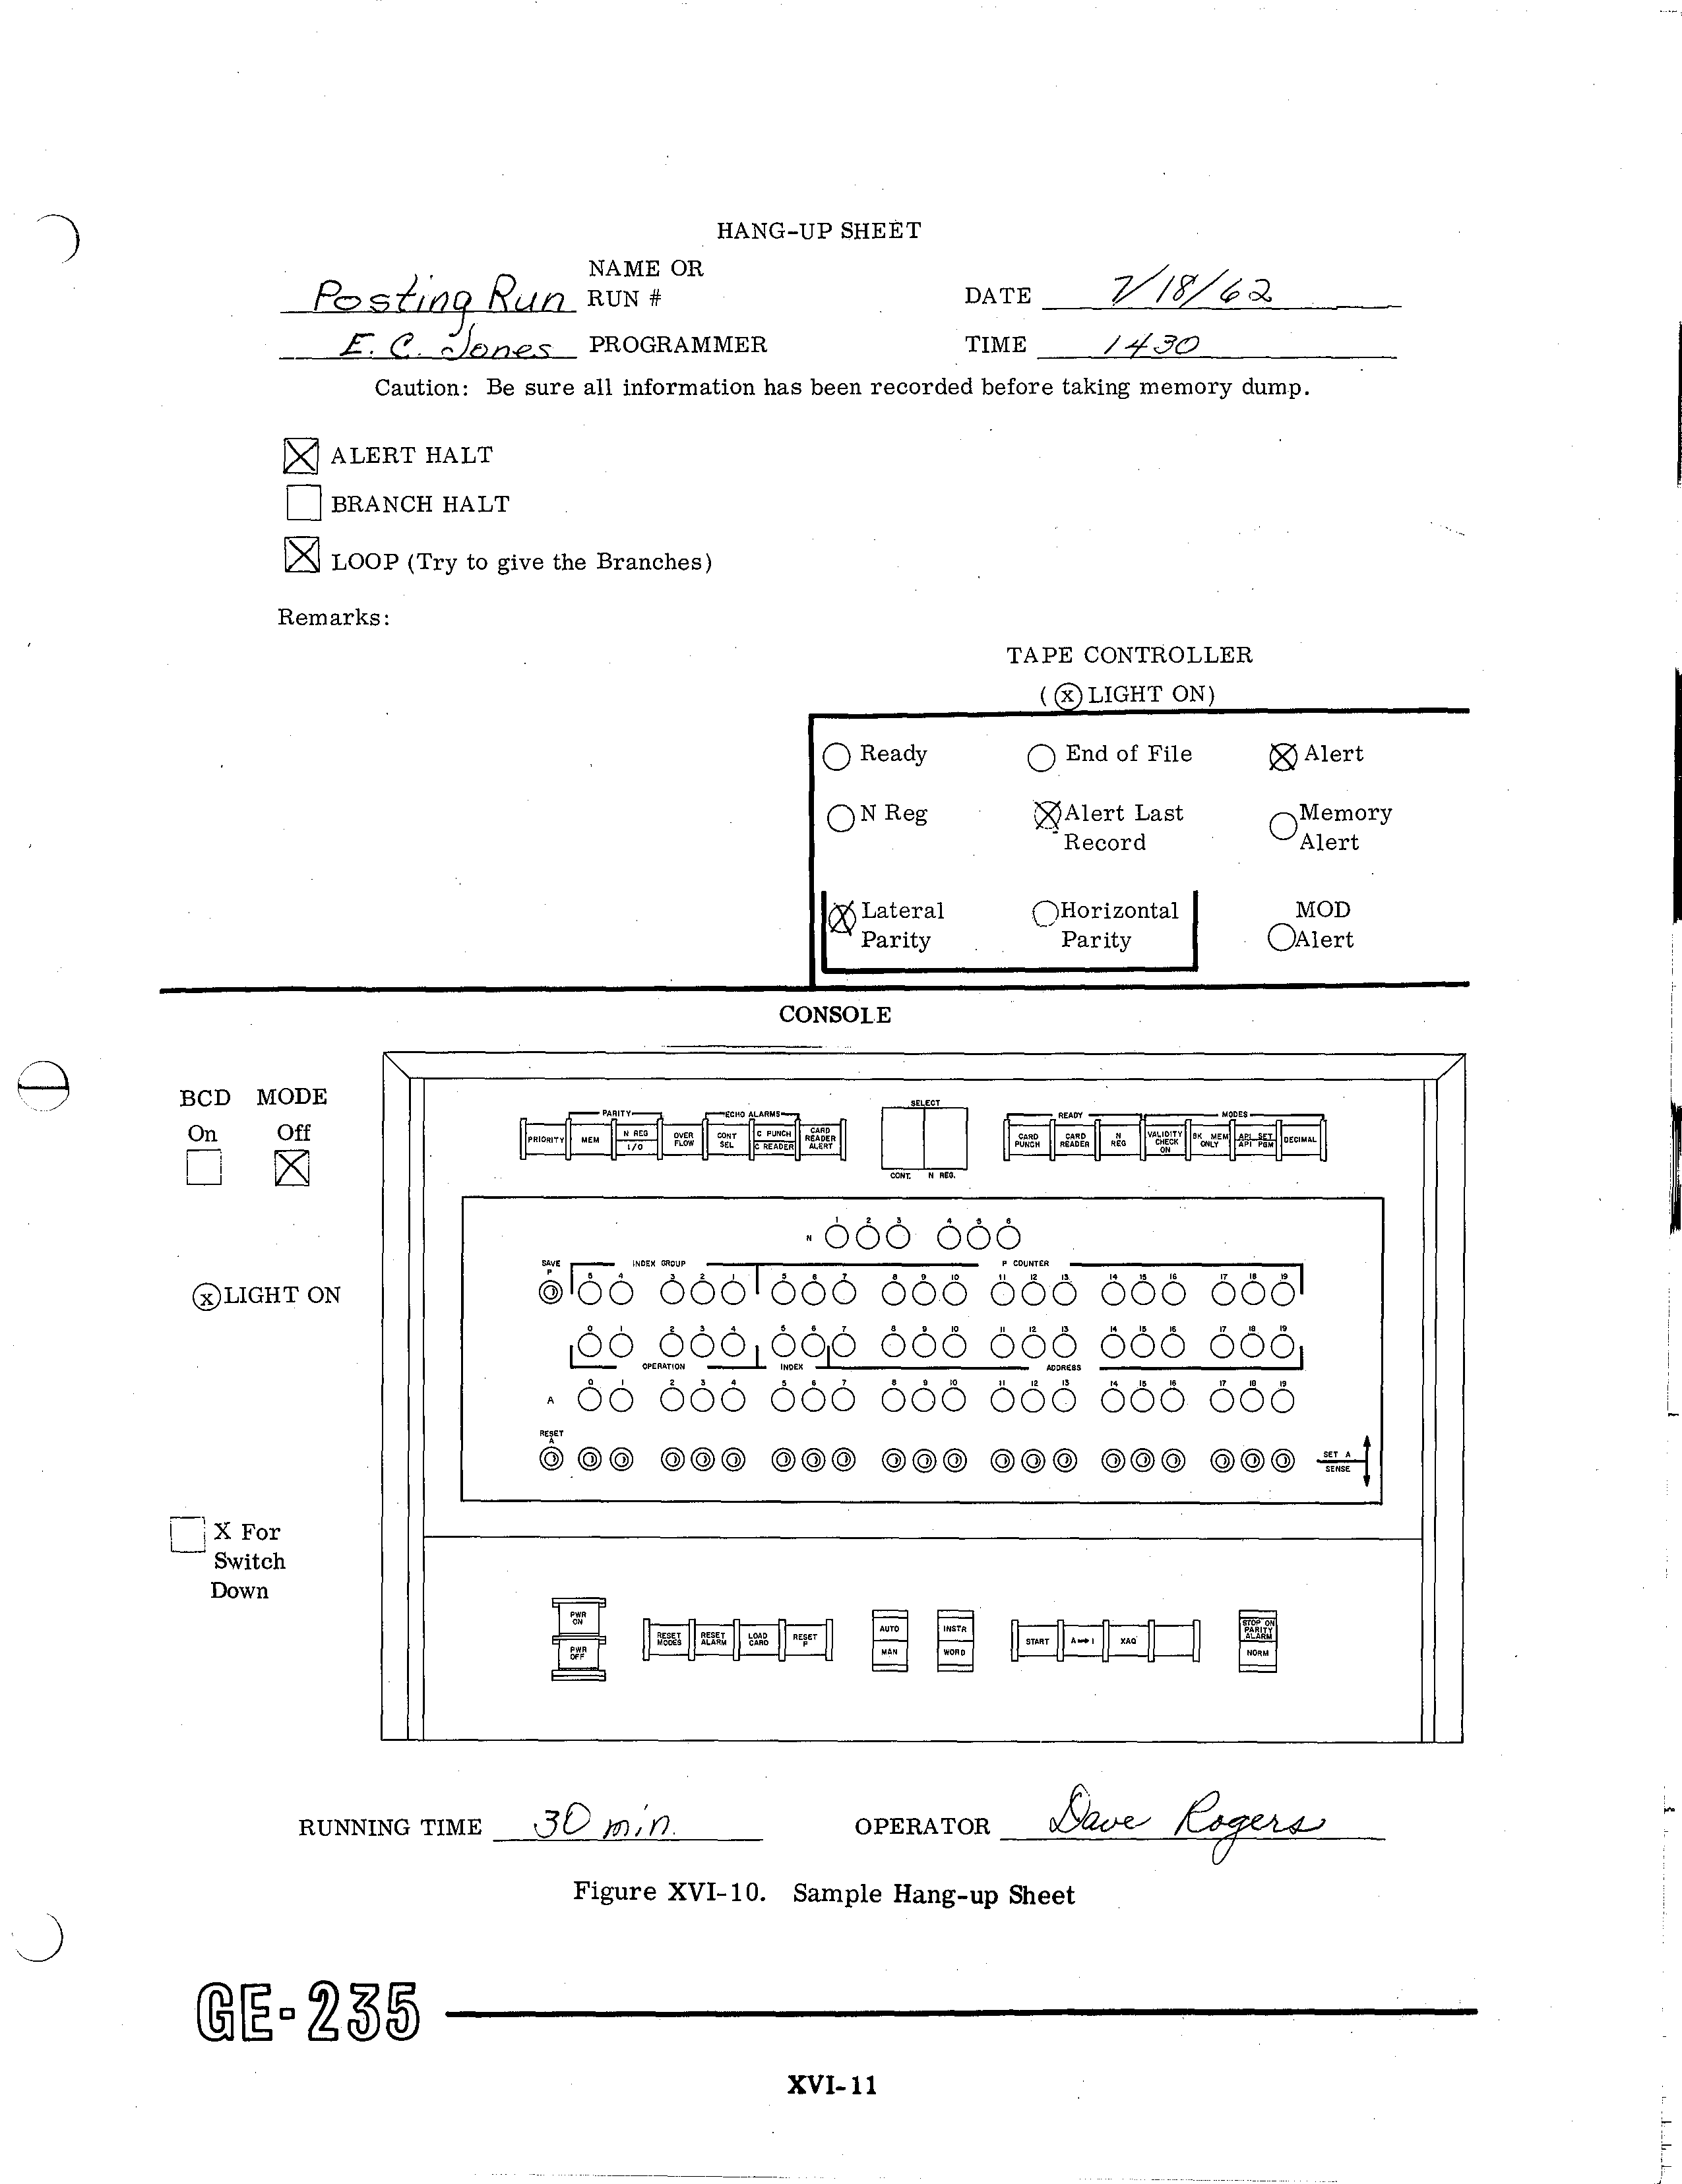 HANG-UP SHEET
NAME OR
Posting Run RUN # DATE 7/18/62
E. C. Jones PROGRAMMER TIME 1430
Caution: Be sure all information has been recorded before taking memory dump.
ALERT HALT
BRANCH HALT
LOOP (Try to give the Branches)
Remarks:
TAPE CONTROLLER
( X LIGHT ON)
Ready End of File Alert
N Reg Alert Last Memory
Record Alert
Lateral Horizontal MOD
Parity Parity Alert
CONSOLE
BCD MODE
On Off
X LIGHT ON
X For
Switch
Down
SELECT
PARITY ECHO ALARMS READY MODES
PRIORITY MEM N REG I/O OVER FLOW CONT SEL C PUNCH C READER CARD READER ALERT CARD PUNCH CARD READER N REG VALIDITY CHECK ON 8K MEM ONLY API SET API PGM DECIMAL
CONT. N REG.
1 2 3 4 5 6
N
SAVE P INDEX GROUP P COUNTER
5 4 3 2 1 5 6 7 8 9 10 11 12 13 14 15 16 17 18 19
0 1 2 3 4 5 6 7 8 9 10 11 12 13 14 15 16 17 18 19
OPERATION INDEX ADDRESS
0 1 2 3 4 5 6 7 8 9 10 11 12 13 14 15 16 17 18 19
A
RESET A
SET A
SENSE
PWR ON AUTO INSTR STOP ON PARITY ALARM
RESET MODES RESET ALARM LOAD CARD RESET P START A↔I XAQ
PWR OFF MAN WORD NORM
RUNNING TIME 30 min. OPERATOR Dave Rogers
Figure XVI-10. Sample Hang-up Sheet
GE-235
XVI-11